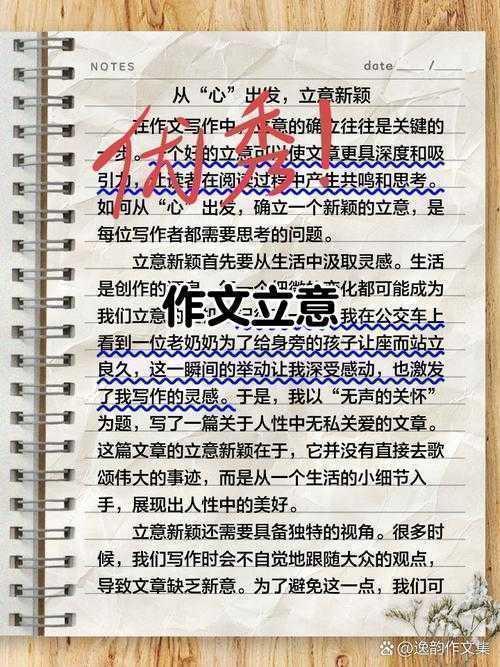 NOTES
date / 
从“心”出发，立意新颖
优秀！
在作文写作中，立意的确立往往是关键的
一步。一个好的立意可以使文章更具深度和吸
引力，让读者在阅读过程中产生共鸣和思考。
如何从“心”出发，确立一个新颖的立意，是
每位写作者都需要思考的问题。
立意新颖首先要从生活中汲取灵感。生活
是创作的 化都可能成为
作文立意
我们立意 我在公交车上
看到一位老奶奶为了给身旁的孩子让座而站立
良久，这一瞬间的举动让我深受感动，也激发
了我写作的灵感。于是，我以“无声的关怀”
为题，写了一篇关于人性中无私关爱的文章。
这篇文章的立意新颖在于，它并没有直接去歌
颂伟大的事迹，而是从一个生活的小细节入
手，展现出人性中的美好。
立意新颖还需要具备独特的视角。很多时
候，我们写作时会不自觉地跟随大众的观点，
导致文章缺乏新意。为了避免这一点，我们可
逸韵作文集